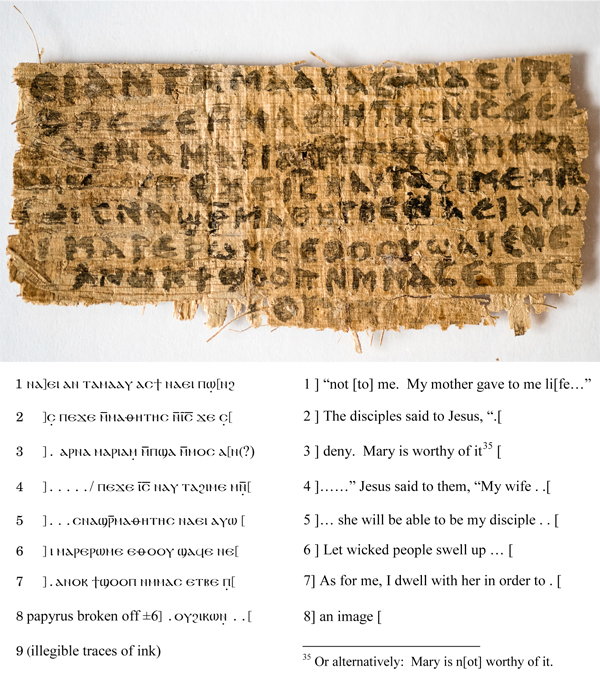 ⲉⲓⲁⲛⲧⲁⲙⲁⲁⲩⲁⲥϯⲛⲁⲉⲓⲡⲱ
ⲡⲉϫⲉⲙⲙⲁⲑⲏⲧⲏⲥⲛⲓ̅ⲥ̅ϫⲉⲥ
ⲁⲣⲛⲁⲙⲁⲣⲓⲁⲙ
ⲡⲉϫⲉⲓ̅ⲥ̅ⲛⲁⲩⲧⲁϩⲓⲙⲉⲙⲛ
ⲥⲛⲁϣⲣ̅ⲙⲁⲑⲏⲧⲏⲥⲛⲁⲉⲓⲁⲩⲱ
ⲓⲙⲁⲣⲉⲣⲱⲙⲉⲉⲑⲟⲟⲩϣⲁϥⲉⲛⲉ
ⲁⲛⲟⲕϯϣⲟⲟⲡⲛⲙⲙⲁⲥⲉⲧⲃⲉ
1 ⲛⲁ]ⲉⲓ ⲁⲛ ⲧⲁⲙⲁⲁⲩ ⲁⲥϯ ⲛⲁⲉⲓ ⲡⲱ̣[ⲛϩ
2 ]ⲥ̣ ⲡⲉϫⲉ ⲙ̅ⲙⲁⲑⲏⲧⲏⲥ ⲛ̅ⲓ̅ⲥ̅ ϫⲉ ⲥ̣[
3 ] . ⲁⲣⲛⲁ ⲙⲁⲣⲓⲁⲙ̣ ⲙ̅ⲡϣⲁ ⲙ̅ⲙⲟⲥ ⲁ[ⲛ(?)
4 ] . . . . . / ⲡⲉϫⲉ ⲓ̅ⲥ̅ ⲛⲁⲩ ⲧⲁϩⲓⲙⲉ ⲙⲛ̣̅[
5 ] . . . ⲥⲛⲁϣⲣ̅ⲙⲁⲑⲏⲧⲏⲥ ⲛⲁⲉⲓ ⲁⲩⲱ [
6 ] ⲓ ⲙⲁⲣⲉⲣⲱⲙⲉ ⲉⲑⲟⲟⲩ ϣⲁϥⲉ ⲛⲉ[
7 ] . ⲁⲛⲟⲕ ϯϣⲟⲟⲡ ⲛⲙⲙⲁⲥ ⲉⲧⲃⲉ ⲡ̣[
8 papyrus broken off ±6] . ⲟⲩϩⲓⲕⲱⲛ̣ . . [
9 (illegible traces of ink)
1 ] “not [to] me. My mother gave to me li[fe…”
2 ] The disciples said to Jesus, “.[
3 ] deny. Mary is worthy of it35 [
4 ]……” Jesus said to them, “My wife . .[
5 ]… she will be able to be my disciple . . [
6 ] Let wicked people swell up … [
7] As for me, I dwell with her in order to . [
8] an image [
35 Or alternatively: Mary is n[ot] worthy of it.